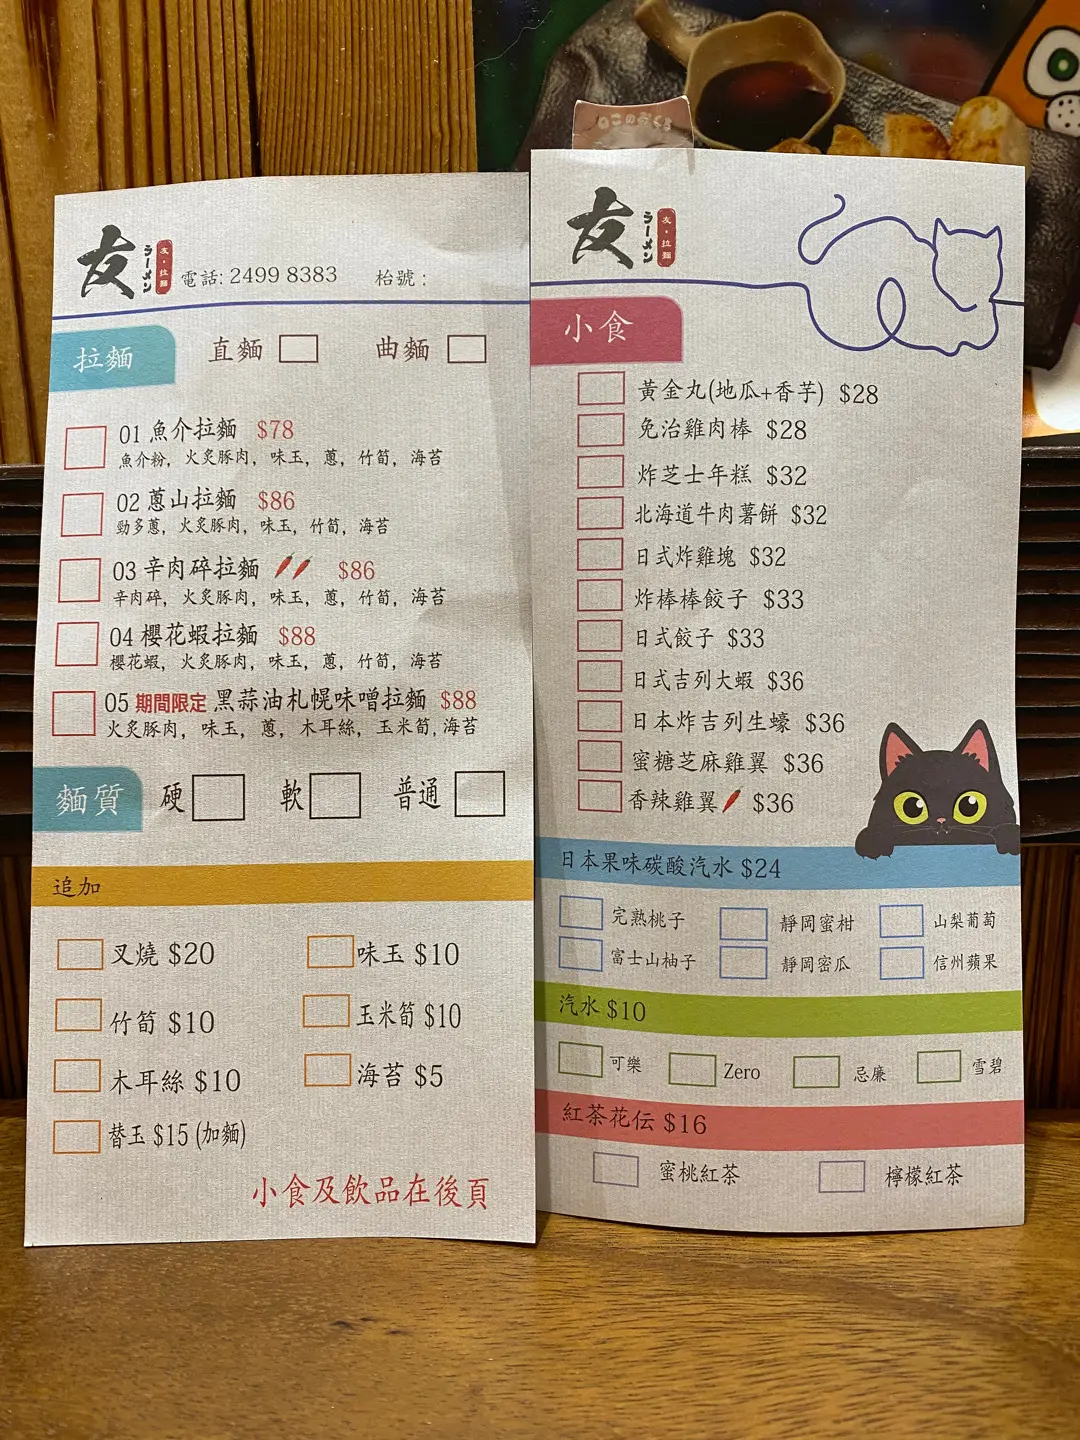 友
ラーメン
友・拉麵
電話: 2499 8383
枱號 :
拉麵
直麵
曲麵
01 魚介拉麵 $78
魚介粉, 火炙豚肉, 味玉, 蔥, 竹筍, 海苔
02 蔥山拉麵 $86
勁多蔥, 火炙豚肉, 味玉, 竹筍, 海苔
03 辛肉碎拉麵 $86
辛肉碎, 火炙豚肉, 味玉, 蔥, 竹筍, 海苔
04 櫻花蝦拉麵 $88
櫻花蝦, 火炙豚肉, 味玉, 蔥, 竹筍, 海苔
05 期間限定 黑蒜油札幌味噌拉麵 $88
火炙豚肉, 味玉, 蔥, 木耳絲, 玉米筍, 海苔
麵質
硬
軟
普通
追加
叉燒 $20
味玉 $10
竹筍 $10
玉米筍 $10
木耳絲 $10
海苔 $5
替玉 $15 (加麵)
小食及飲品在後頁
ねこのおくる
友
ラーメン
友・拉麵
小食
黃金丸(地瓜+香芋) $28
免治雞肉棒 $28
炸芝士年糕 $32
北海道牛肉薯餅 $32
日式炸雞塊 $32
炸棒棒餃子 $33
日式餃子 $33
日式吉列大蝦 $36
日本炸吉列生蠔 $36
蜜糖芝麻雞翼 $36
香辣雞翼 $36
日本果味碳酸汽水 $24
完熟桃子
靜岡蜜柑
山梨葡萄
富士山柚子
靜岡密瓜
信州蘋果
汽水 $10
可樂
Zero
忌廉
雪碧
紅茶花伝 $16
蜜桃紅茶
檸檬紅茶